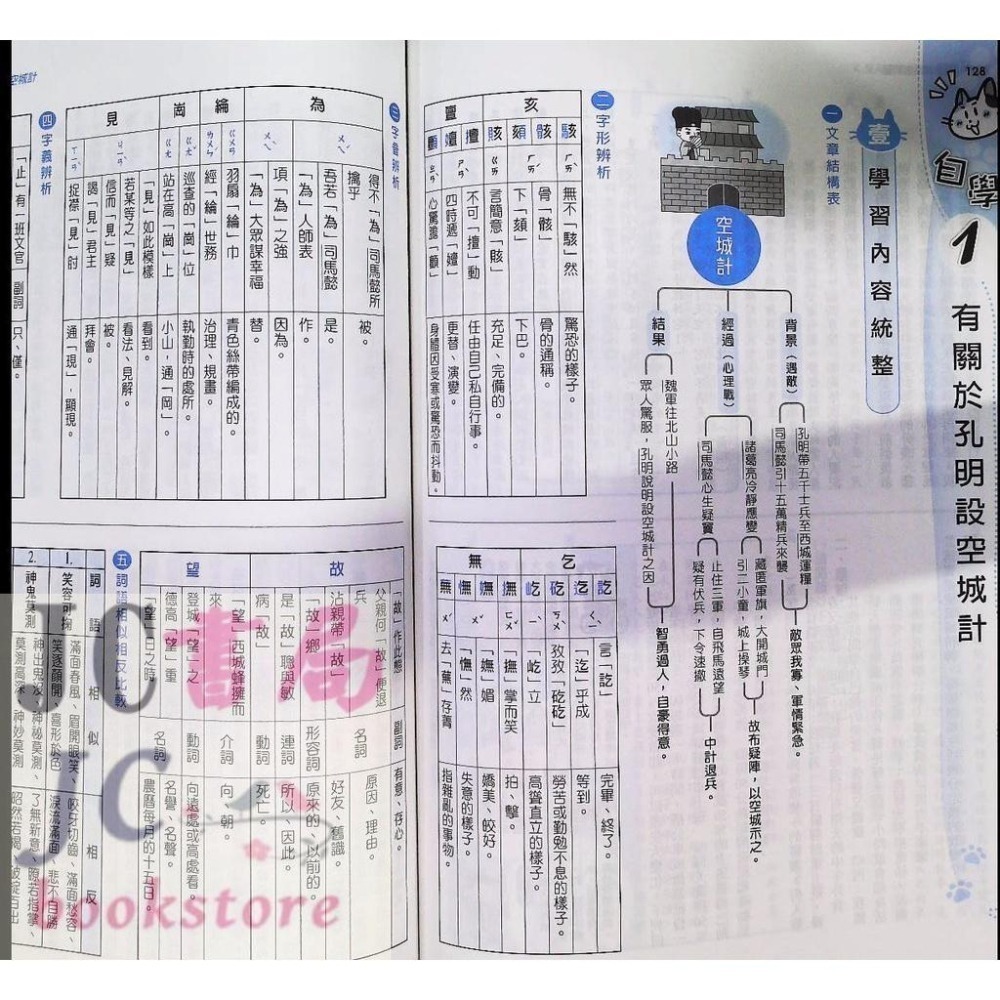 128
自學
1 有關於孔明設空城計
壹 學習內容統整
一 文章結構表
空城計
背景（遇敵）
孔明帶五千士兵至西城運糧
司馬懿引十五萬精兵來襲
敵眾我寡、軍情緊急。
經過（心理戰）
諸葛亮冷靜應變
藏匿軍旗，大開城門
引二小童，城上操琴
故布疑陣，以空城示之。
司馬懿心生疑竇
止住三軍，自飛馬遠望
疑有伏兵，下令速撤
中計退兵。
結果
魏軍往北山小路
眾人驚服，孔明說明設空城計之因
智勇過人，自豪得意。
二 字形辨析
亥
駭 ㄏㄞˋ 無不「駭」然 驚恐的樣子。
骸 ㄏㄞˊ 骨「骸」 骨的通稱。
頦 下「頦」 下巴。
賅 ㄍㄞ 言簡意「賅」 充足、完備的。
亶
擅 ㄕㄢˋ 不可「擅」動 任由自己私自行事。
嬗 ㄕㄢˋ 四時遞「嬗」 更替、演變。
顫 心驚膽「顫」 身體因受寒或驚恐而抖動。
乞
訖 ㄑㄧˋ 言「訖」 完畢、終了。
迄 「迄」乎成 等到。
矻 ㄎㄨˋ 孜孜「矻矻」 勞苦或勤勉不息的樣子。
屹 ㄧˋ 「屹」立 高聳直立的樣子。
無
撫 ㄈㄨˇ 「撫」掌而笑 拍、擊。
嫵 ㄨˇ 「嫵」媚 嬌美、姣好。
憮 ㄨˇ 「憮」然 失意的樣子。
蕪 ㄨˊ 去「蕪」存菁 指雜亂的事物。
三 字音辨析
為
ㄨㄟˊ
得不「為」司馬懿所擒乎 被。
吾若「為」司馬懿 是。
「為」人師表 作。
ㄨㄟˋ
項「為」之強 因為。
「為」大眾謀幸福 替。
綸
ㄍㄨㄢ 羽扇「綸」巾 青色絲帶編成的。
ㄌㄨㄣˊ 經「綸」世務 治理、規畫。
崗
ㄍㄤˇ 巡查的「崗」位 執勤時的處所。
ㄍㄤ 站在高「崗」上 小山，通「岡」。
見
ㄐㄧㄢˋ
「見」如此模樣 看到。
若某等之「見」 看法、見解。
信而「見」疑 被。
謁「見」君主 拜會。
ㄒㄧㄢˋ 捉襟「見」肘 通「現」，顯現。
故
「故」作此態 副詞 有意、存心。
父親何「故」便退兵 名詞 原因、理由。
沾親帶「故」 名詞 好友、舊識。
「故」鄉 形容詞 原來的、以前的。
是「故」聰與敏 連詞 所以、因此。
病「故」 動詞 死亡。
望
「望」西城蜂擁而來 介詞 向、朝。
登城「望」之 動詞 向遠處或高處看。
德高「望」重 名詞 名譽、名聲。
「望」日之時 名詞 農曆每月的十五日。
空城計
四 字義辨析
「止」有一班文官 副詞 只、僅。
五 詞語相似相反比較
詞語 相似 相反
1. 笑容可掬
滿面春風、眉開眼笑、
笑逐顏開、喜形於色
咬牙切齒、滿面愁容、
淚流滿面、悲不自勝
2. 神鬼莫測
神出鬼沒、神秘莫測、
莫測高深、神妙莫測
了無新意、瞭若指掌、
昭然若揭、破綻百出
JC書局
JC
bookstore